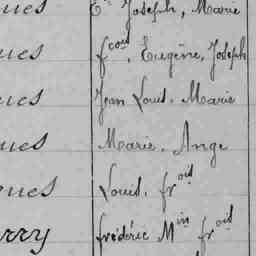 ues E. Joseph, Marie
ues fcois, Eugène, Joseph
ues Jean Louis, Marie
ues Marie, Ange
ques Louis, frois
rry frédéric Min frois